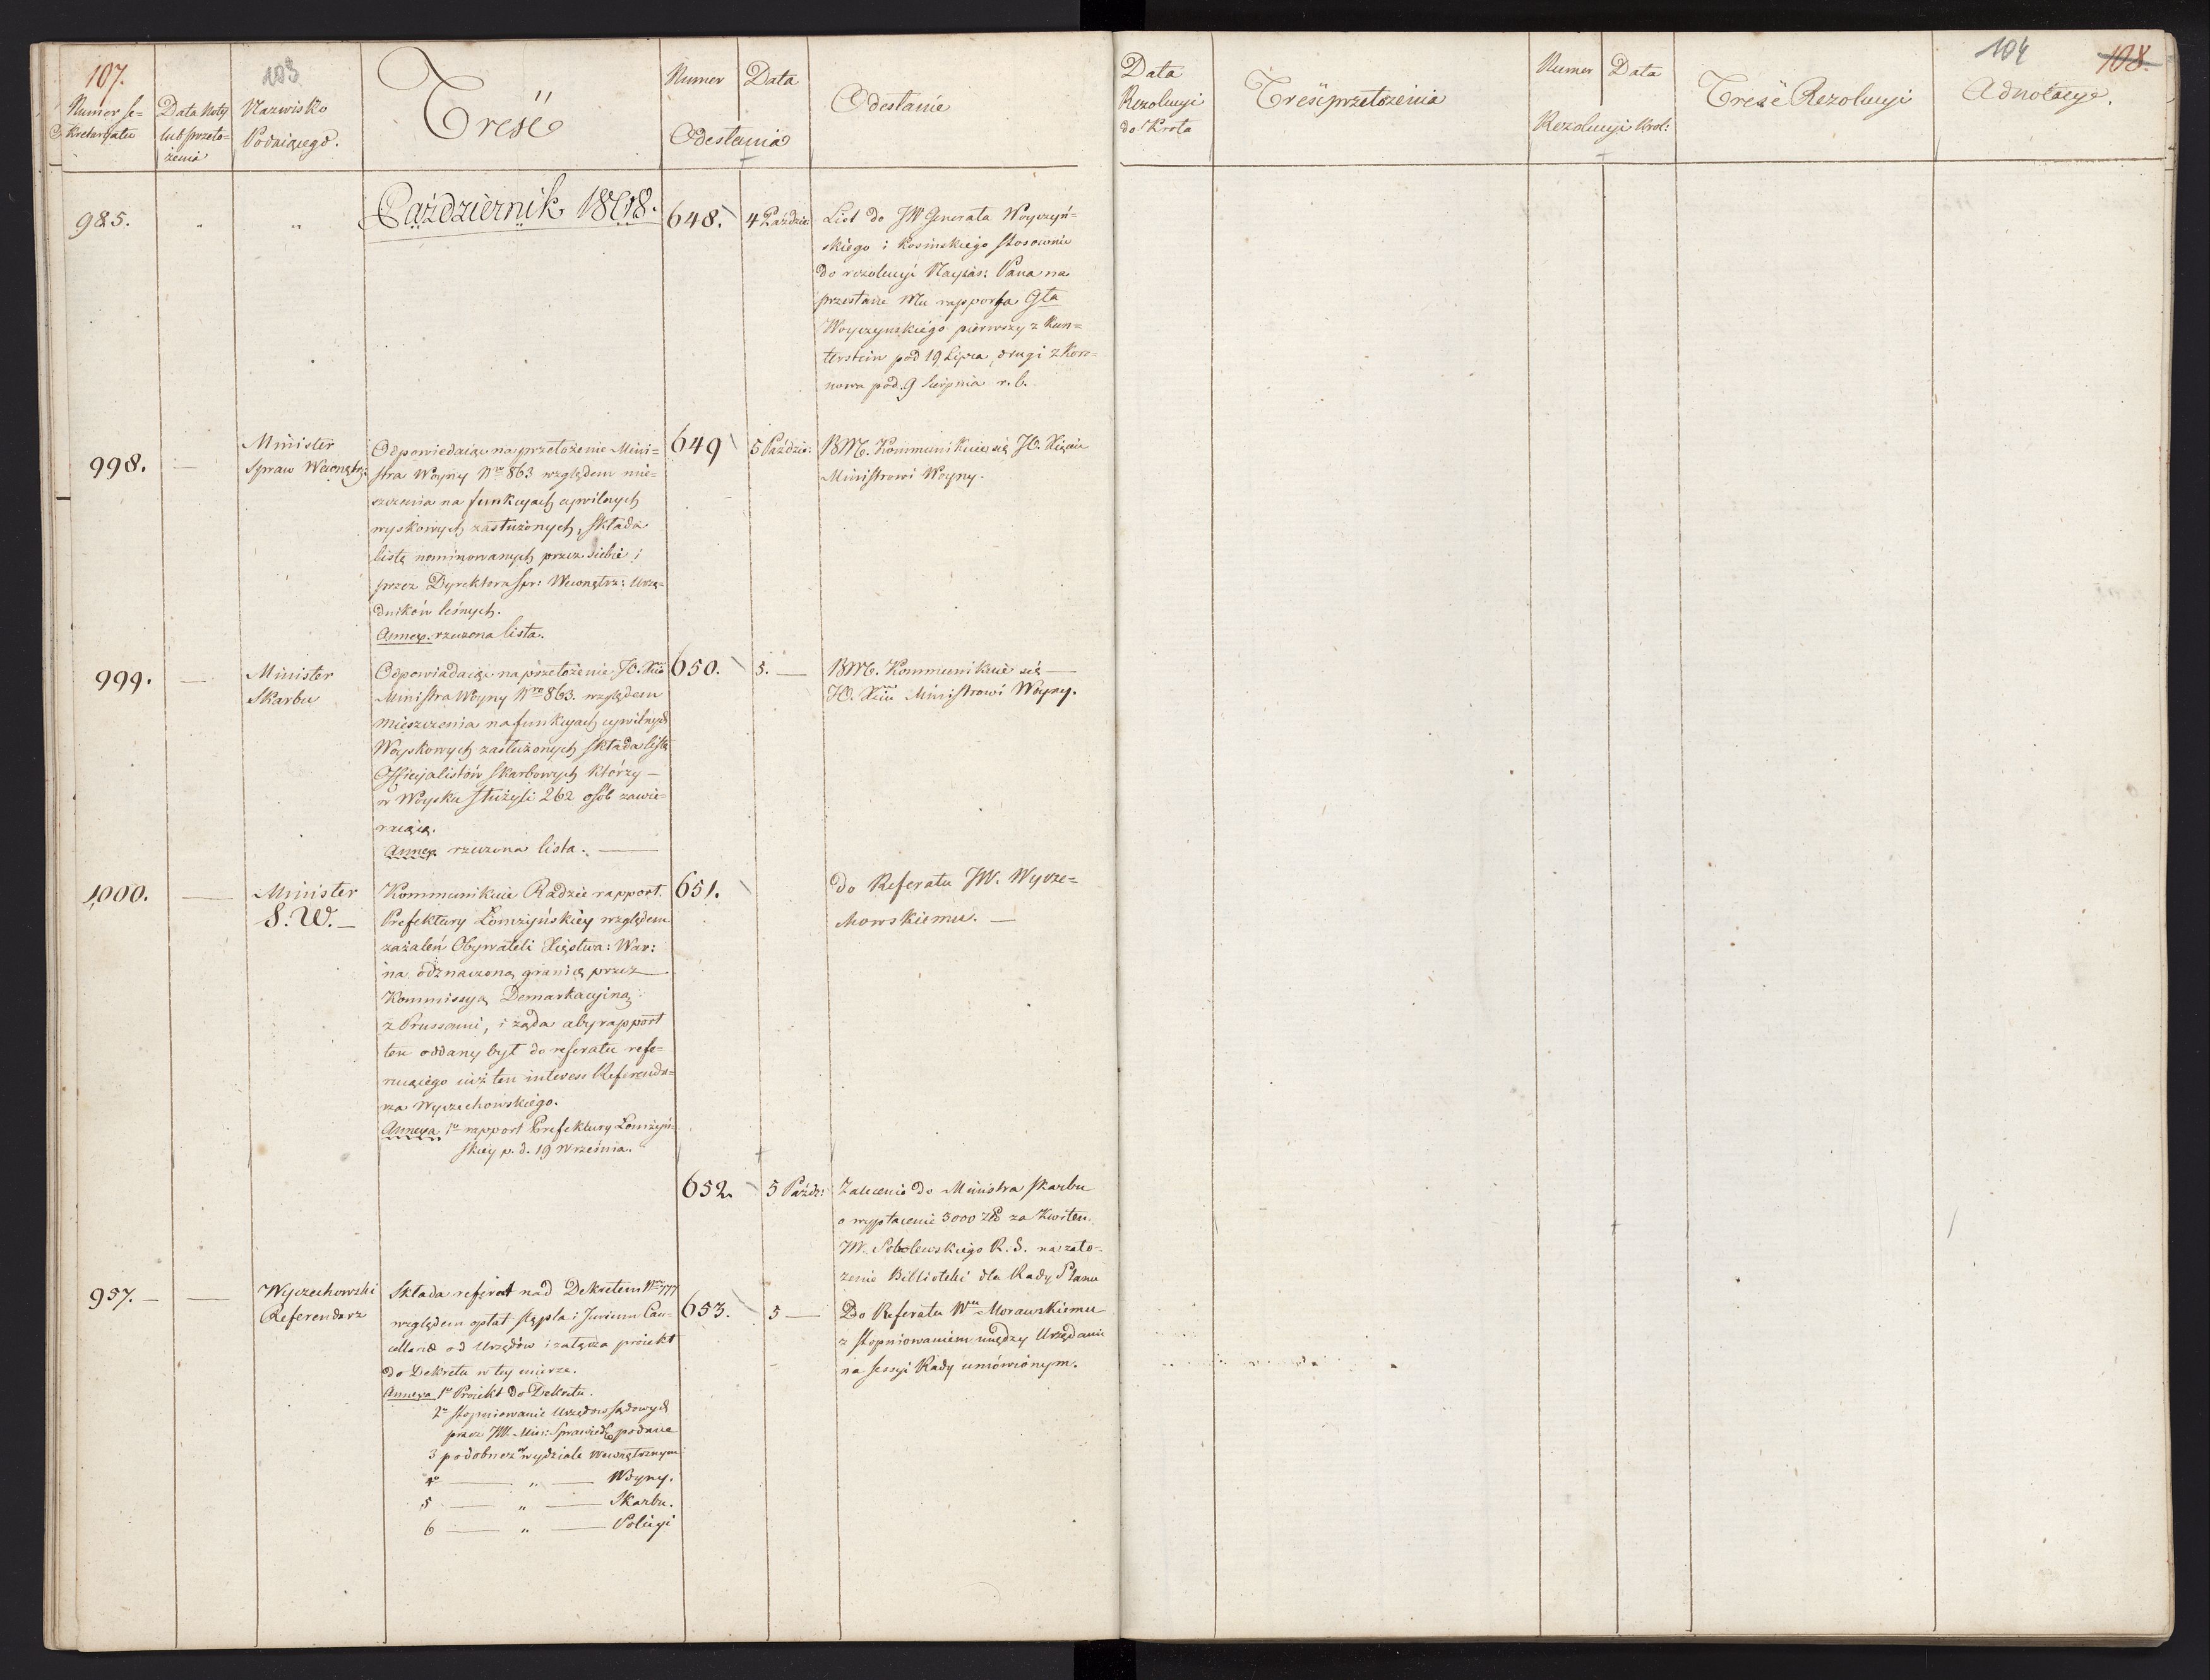 107.
103
Numer Se=
kretaryatu
Data Noty
lub przeło=
żenia
Nazwisko
Podaiącego.
Treść
Numer
Data
Odesłania
Odesłanie
Październik 1808.
985.
"
"
648.
4 Paździe:
List do JW Generała Woyczyń=
skiego i Kosinskiego stosownie
do rezolucyi Nayjaś: Pana na
przesłane Mu rapporta Gła
Woyczynskiego pierwszy z Kun=
terstein pod 19 Lipca, drugi z Koro=
nowa pod. 9 Sierpnia r. b.
998.
Minister
Spraw Wewnętrz:
Odpowiedaiąc na przełożenie Mini=
stra Woyny Nro 863 względem mie=
szczenia na funkcyach cywilnych
woyskowych zasłużonych, składa
listę nominowanych przez siebie i
przez Dyrektora Spr: Wewnętrz: Urzę=
dników leśnych.
Annex. rzeczona lista.
649
5 Paździe:
BM. Kommunikuie się JO. Xięciu
Ministrowi Woyny.
999.
Minister
Skarbu
Odpowiadaiąc na przełożenie JO. Xcia
Ministra Woyny Nro 863. względem
mieszczenia na funkcyach cywilnych
Woyskowych zasłużonych składa listę
Officyalistów skarbowych którzy
w Woysku służyli 262 osób zawie=
raiącą.
Annex rzeczona lista.
650.
5.
BM. Kommunikuie się
JO. Xciu Ministrowi Woyny.
1000.
Minister
S. W.
Kommunikuie Radzie rapport
Prefektury Łomżyńskiey względem
zażaleń Obywateli Xięstwa: War:
na odznaczoną granicę przez
Kommissyą Demarkacyiną
z Prussami, i żąda aby rapport
ten oddany był do referatu refe=
ruiącego iuż ten interess Referenda=
rza Wyczechowskiego.
Annexa 1o rapport Prefektury Łomżyń
skiey p. d. 19 Września.
651.
do Referatu JW. Wycze=
chowskiemu.
652.
5 Paźdz:
Zalecenie do Ministra Skarbu
o wypłacenie 3000 Zł za Kwitem
JW. Sobolewskiego R. S. na zało=
żenie Biblioteki dla Rady Stanu
957.
Wyczechowski
Referendarz
Składa referat nad Dekretem Nro 777
względem opłat stępla i Jurium Can=
cellariæ od Urzędów i załącza proiekt
do Dekretu w tey mierze.
Annexa 1o Proiekt do Dekretu.
2o stopniowanie Urzędow sądowych
przez JW. Min: Sprawiedl: podane
3 podobnez w wydziale Wewnętrznym
4o " Woyny.
5 " Skarbu.
6 " Policyi
653.
5
Do Referatu Wu Morawskiemu
z stopniowaniem między Urzędami
na sessyi Rady umówionym.
104
108.
Data
Rezolucyi
do Króla
Treść przełożenia
Numer
Data
Rezolucyi Król:
Treść Rezolucyi
Adnotacye.